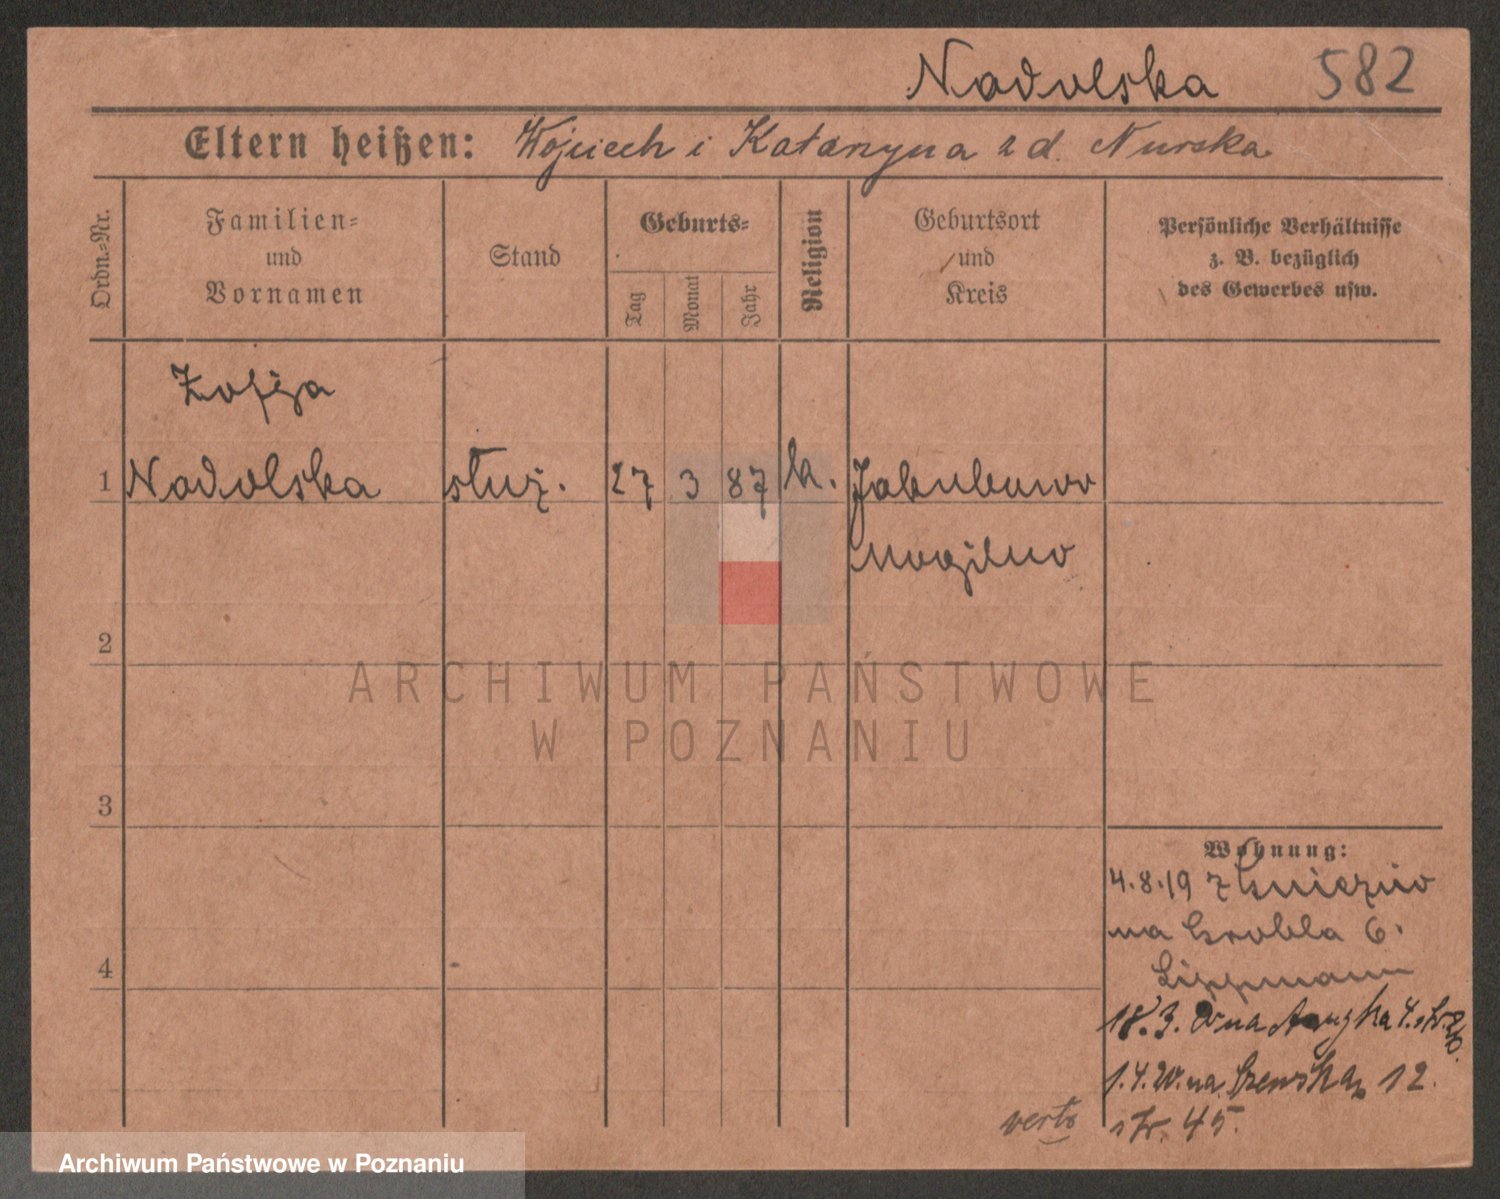 Nadolska 582
Eltern heißen: Wojciech i Katarzyna z d. Nurska
Ordn.-Nr.
Familien- und Vornamen
Stand
Geburts-
Tag
Monat
Jahr
Religion
Geburtsort und Kreis
Persönliche Verhältnisse z. B. bezüglich des Gewerbes usw.
Zofja
1 Nadolska służ. 27 3 87 k. Jakubowo
Mogilno
2
3
4
Wohnung:
4.8.19 z Gniezno
na Grobla 6.
Lippmann
18.3. na 4. str.
1.4.20. na Szewska 12.
str. 45.
verto
ARCHIWUM PAŃSTWOWE
W POZNANIU
Archiwum Państwowe w Poznaniu